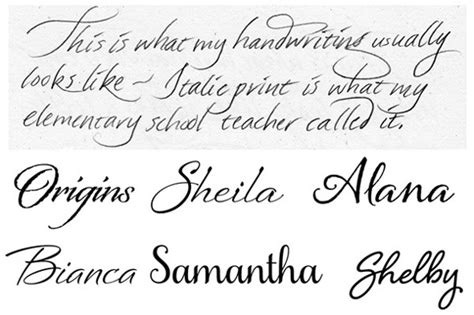 This is what my handwriting usually
looks like – Italic print is what my
elementary school teacher called it.
Origins Sheila Alana
Bianca Samantha Shelby